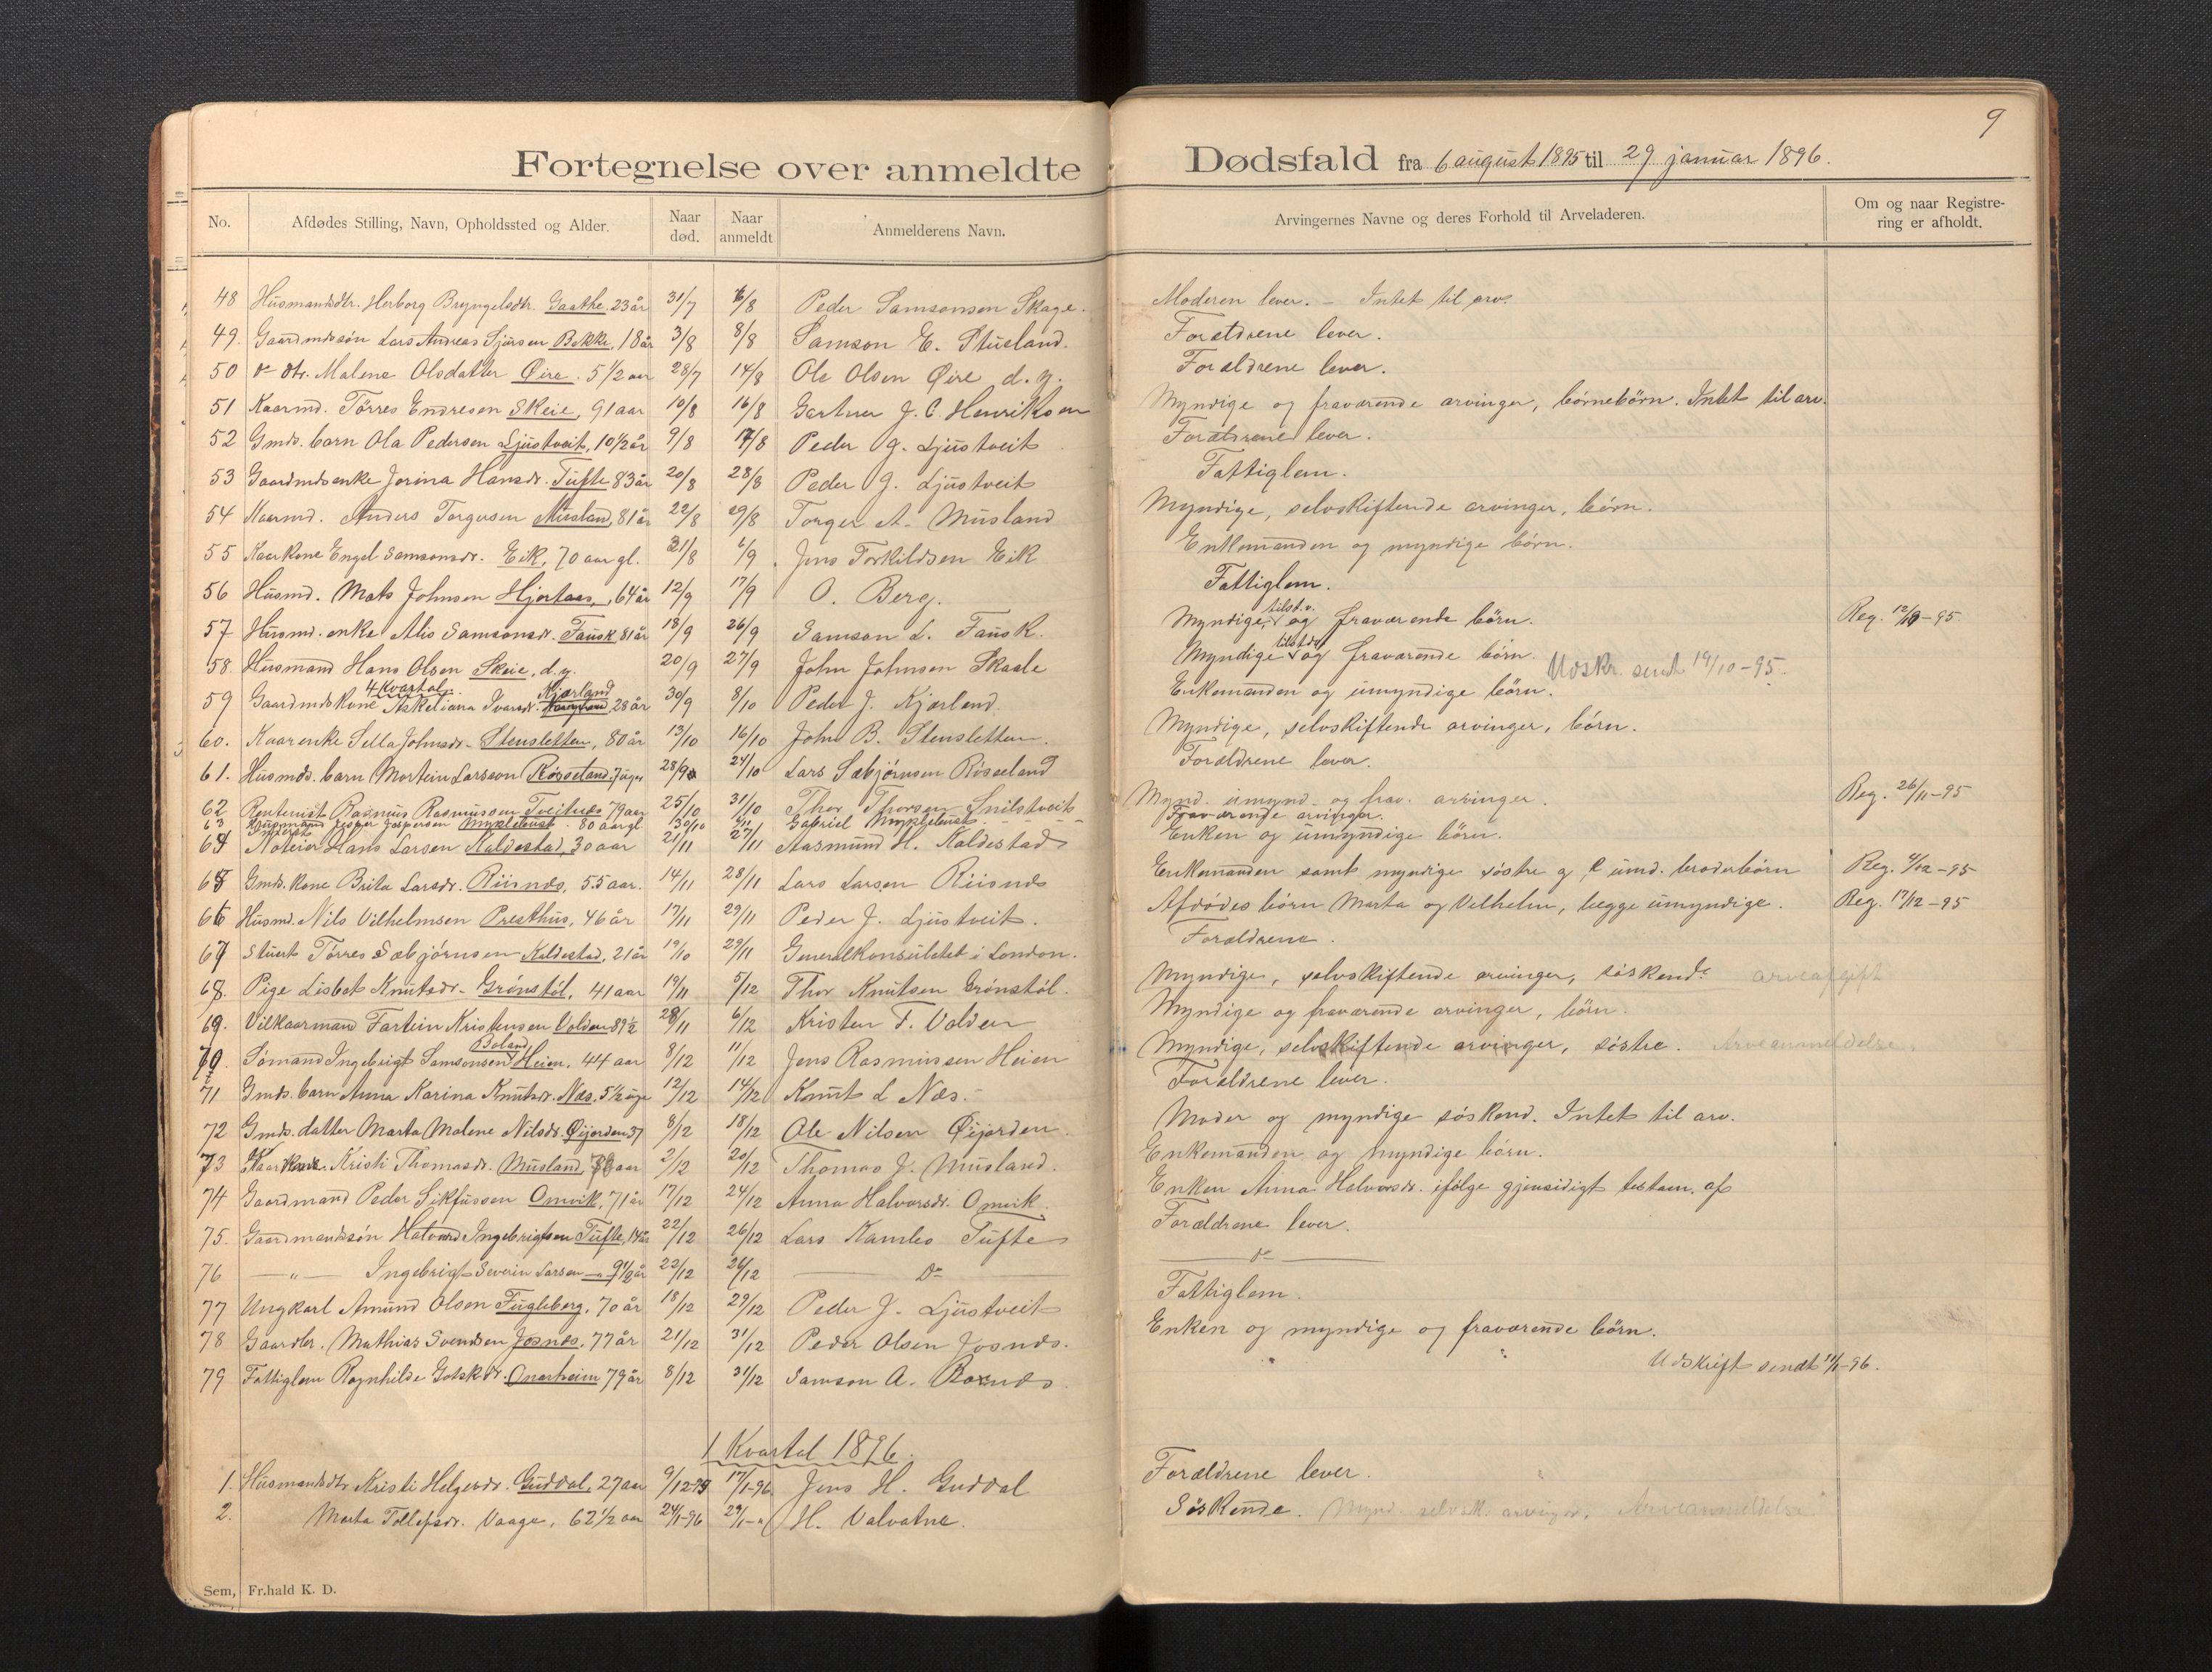 9
Fortegnelse over anmeldte Dødsfald fra 6 august 1895 til 29 januar 1896.
No. Afdødes Stilling, Navn, Opholdssted og Alder. Naar død. Naar anmeldt Anmelderens Navn. Arvingernes Navne og deres Forhold til Arveladeren. Om og naar Registrering er afholdt.
48 Husmandsdtr. Herborg Bryngelsdtr. Gaathe. 23 år 31/7 6/8 Peder Samsonsen Skage. Moderen lever. – Intet til arv.
49. Gaardmdssøn Lars Andreas Sjursen Bekke, 18 år 3/8 8/8 Samson E. Stueland. Forældrene lever.
50 do dtr. Malene Olsdatter Øire. 5 1/2 aar 28/7 14/8 Ole Olsen Øire d. y. Forældrene lever.
51 Kaarmd. Tørres Endresen Skeie, 91 aar 10/8 16/8 Gartner J. C. Henriksen Myndige og fraværende arvinger, børnebörn. Intet til arv.
52 Gmds. barn Ola Pedersen Ljustveit, 10 1/2 år 9/8 17/8 Peder J. Ljustveit Forældrene lever.
53 Gaardmdsenke Jorina Hansdr. Tufte 83 år 20/8 28/8 Peder J. Ljustveit Fattiglem.
54 Kaarmd. Anders Torgersen Musland, 81 år 22/8 29/8 Torger A. Musland Myndige, selvskiftende arvinger, børn.
55 Kaarkone Engel Samsonsdr. Eik, 70 aar gl. 31/8 6/9 Jens Torkildsen Eik Enkemanden og myndige børn.
56 Husmd. Mats Johnsen Hjortaas, 64 år 12/9 17/9 O. Berg. Fattiglem.
57 Husmd. enke Alis Samsonsdr. Fausk, 81 år 18/9 26/9 Samson L. Fausk. Myndige, tilst.v. og fraværende børn. Reg. 12/10-95.
58. Husmand Hans Olsen Skeie, d.y. 20/9 27/9 John Johnsen Skaale Myndige og fraværende børn. Udskr. sendt 14/10-95.
4 Kvartal.
59 Gaardmdskone Askeliana Ivarsdr. Kjærland 28 år 30/9 8/10 Peder J. Kjærland. Enkemanden og umyndige børn.
60. Kaarenke Sella Johnsdr. Stensletten, 80 år 13/10 16/10 John B. Stensletten. Myndige, selvskiftende arvinger, børn.
61. Husmds. barn Mortein Larsson Røsseland. 7 uger 28/9 24/10 Lars Sæbjörnsen Rösseland Forældrene lever.
62 Rentenist Rasmus Rasmussen Tveitnes 79 aar 25/10 31/10 Thor Thorsen Snilstveit Mynd. umynd. og frav. arvinger. Reg. 26/11-95
63 Husmand Jesper Jespersen Myklebust. 80 aar gl. 30/10 Gabriel Myklebust Fraværende arvinger.
64 Noteier Hans Larsen Kaldestad, 30 aar 21/11 27/11 Aasmund H. Kaldestad Enken og umyndige börn.
65 Gmds. kone Brita Larsdr. Riisnes, 55 aar. 14/11 28/11 Lars Larsen Riisnes Enkemanden samt myndige søstre og umd. broderbörn Reg. 4/12-95
66 Husmd. Nils Vilhelmsen Presthus, 46 år 17/11 29/11 Peder J. Ljustveit. Afdødes børn Marta og Vilhelm, begge umyndige. Reg. 17/12-95
67 Stuert Törres Sæbjörnsen Kaldestad, 21 år 19/10 29/11 Generalkonsulatet i London. Forældrene.
68. Pige Lisbet Knutsdr. Grönstöl, 41 aar 19/11 5/12 Thor Knutsen Grönstöl. Myndige, selvskiftende arvinger, söskende arveafgift
69. Vilkaarmand Tartein Kristensen Valden 89 1/2 28/11 6/12 Kristen T. Valden Myndige og fraværende arvinger, börn.
70. Sømand Ingebrigt Samsonsen Boland Heien, 44 aar 8/12 11/12 Jens Rasmussen Heien Myndige, selvskiftende arvinger, søstre. Arveanmeldelse.
71 Gmds. barn Anna Karina Knutsdr. Næs, 5 1/2 uge 12/12 14/12 Knut L Næs. Forældrene lever.
72 Gmds. datter Marta Malene Nilsdr. Øijorden 37 8/12 18/12 Ole Nilsen Øijorden. Moder og myndige söskend. Intet til arv.
73 Kaarkone Kristi Thomasdr. Musland, aar 2/12 20/12 Thomas J. Musland. Enkemanden og myndige börn.
74 Gaardmand Peder Sikfussen Omvik, 71 år 17/12 24/12 Anna Halvorsdr. Omvik. Enken Anna Halvorsdr. ifølge gjensidigt testam. af
75. Gaardmandssön Halvard Ingebrigtsen Tufte, 14 år 22/12 26/12 Lars Kamles Tufte Forældrene lever.
76 — " — Ingebrigt Severin Larsen — " 9 1/2 år 22/12 26/12 — Do — — do —
77 Ungkarl Amund Olsen Fugleberg, 70 år 18/12 29/12 Peder J. Ljustveit Fattiglem.
78 Gaardbr. Mathias Svendsen Josnes, 77 år 21/12 31/12 Peder Olsen Josnes. Enken og myndige og fraværende börn.
79 Fattiglem Ragnhilde Gotskdr. Onarheim 79 år 8/12 31/12 Samson A. Boxnes " " Udskrift sendt 11/1-96.
1 Kvartal 1896.
1. Husmandsdtr Kristi Helgesdr. Guddal, 27 aar 9/12-95 17/1-96. Jens H. Guddal Forældrene lever.
2. Marta Tollefsdr. Vaage, 62 1/2 aar 24/1-96 29/1-" H. Valvatne. Söskende. Mynd. selvsk. arvinger. Arveanmeldelse
Sem, Fr.hald K. D.